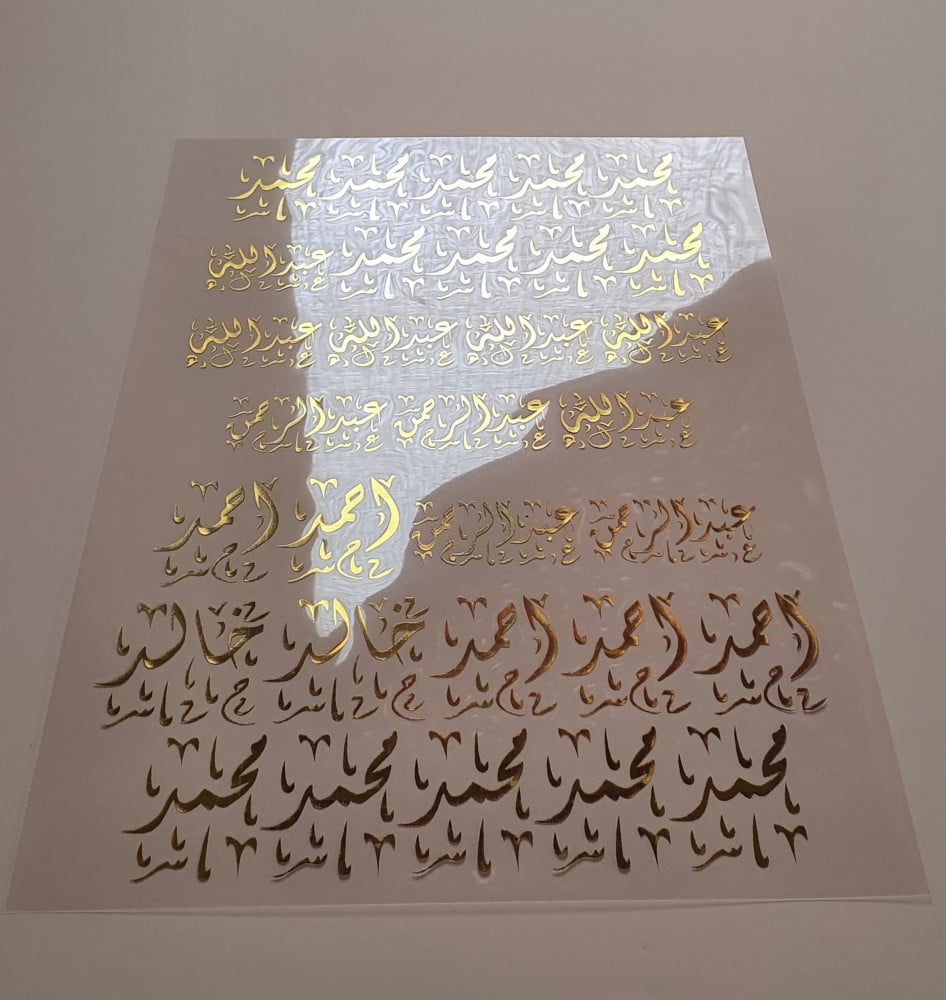 محمد محمد محمد محمد محمد
محمد محمد محمد محمد عبدالله
عبدالله عبدالله عبدالله عبدالله
عبدالله عبدالرحمن عبدالرحمن
عبدالرحمن عبدالرحمن احمد احمد
احمد احمد احمد خالد خالد
محمد محمد محمد محمد محمد